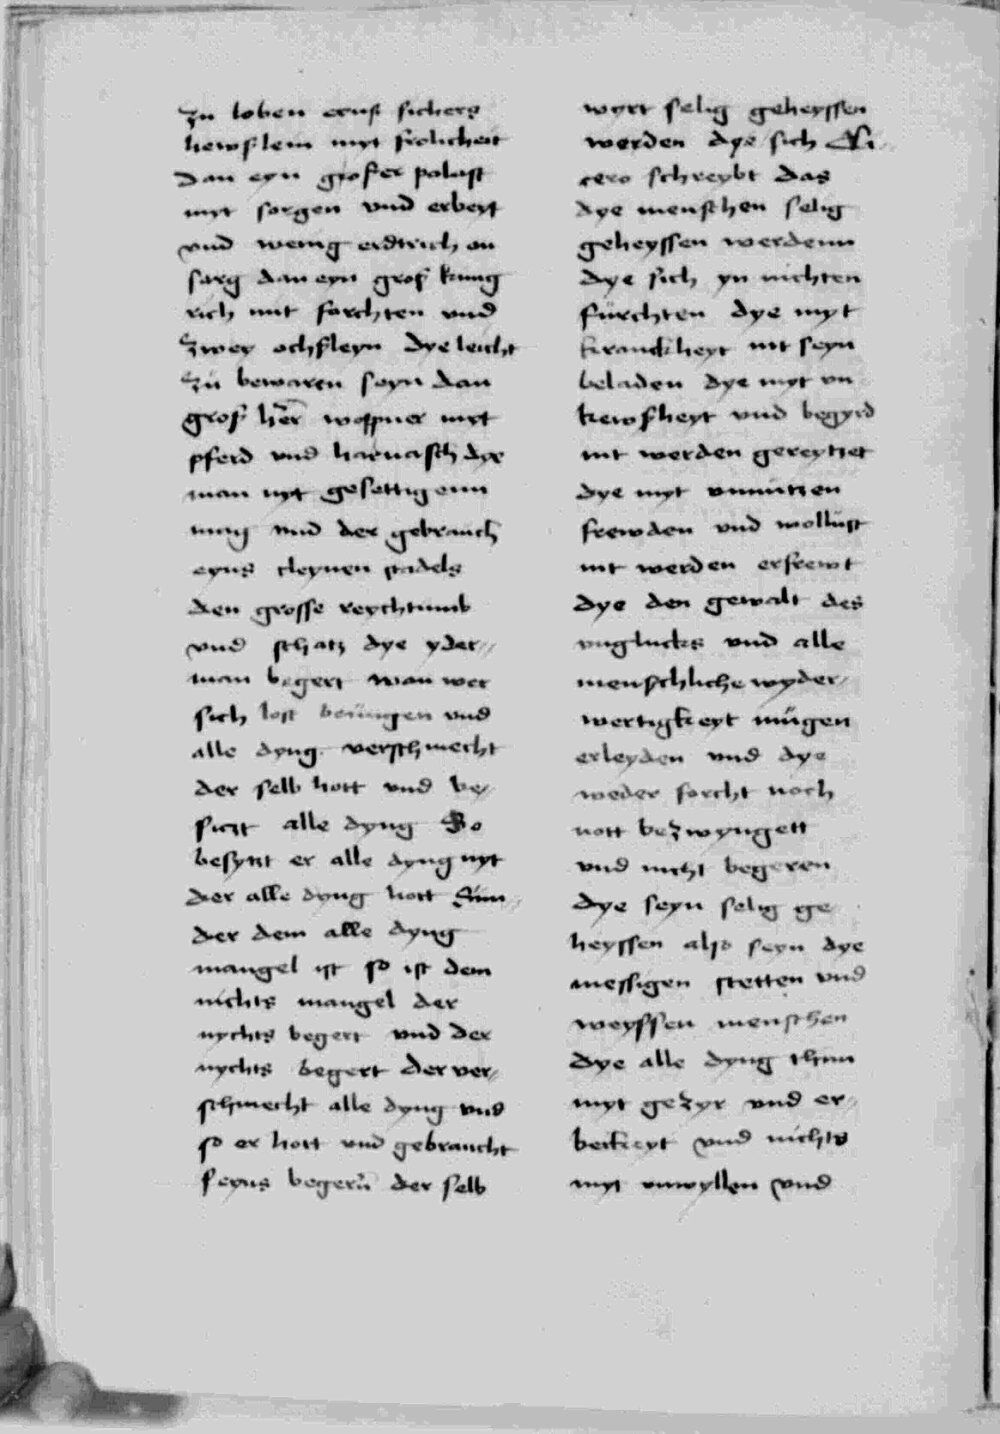 zu loben ernst sichers
hewslein myt frolicheit
Dan eyn groser polast
myt sorgen vnd erbeyt
vnd wenig erdtrich on
sorg dan eyn gros kung
rich mit forchten vnd
zwey ochsleyn dye leicht
zu bewaren seyn dan
gros her woppner myt
pferd vnd harnasch dye
man nyt gesettigenn
mag vnd der gebrauch
eyns cleynen stadels
den grosse reychtumb
vnd schatz dye yder//
man begert wan wer
sich lost benugen vnd
alle dyng verschmecht
der selb hott vnd be/
siczt alle dyng So
besytzt er alle dyng nyt
der alle dyng hott Sun/
der dem alle dyng
mangel ist so ist dem
nichts mangel der
nychts begert vnd der
nychts begert der ver/
schmecht alle dyng vnd
so er hott vnd gebraucht
seyns begern der selb
wyrt selig geheyssen
werden dye sich Ci/
cero schreybt das
dye menschen selig
geheyssen werdenn
dye sich yn nichten
fürchten dye myt
kranckheyt nit seyn
beladen dye myt vn
kewsheyt vnd begyrd
nit werden gereytzet
dye myt vnnützen
frewden vnd wollüst
nit werden erfrewt
dye den gewalt des
vnglucks vnd alle
menschliche wyder/
wertigkeyt mügen
erleyden vnd dye
weder forcht noch
nott bezwyngett
vnd nicht begeren
dye seyn selig ge
heyssen also seyn dye
messigen stetten vnd
weyssen menschen
dye alle dyng thun
myt gezyr vnd er//
berkeyt vnd nichts
myt vnwyllen vnd